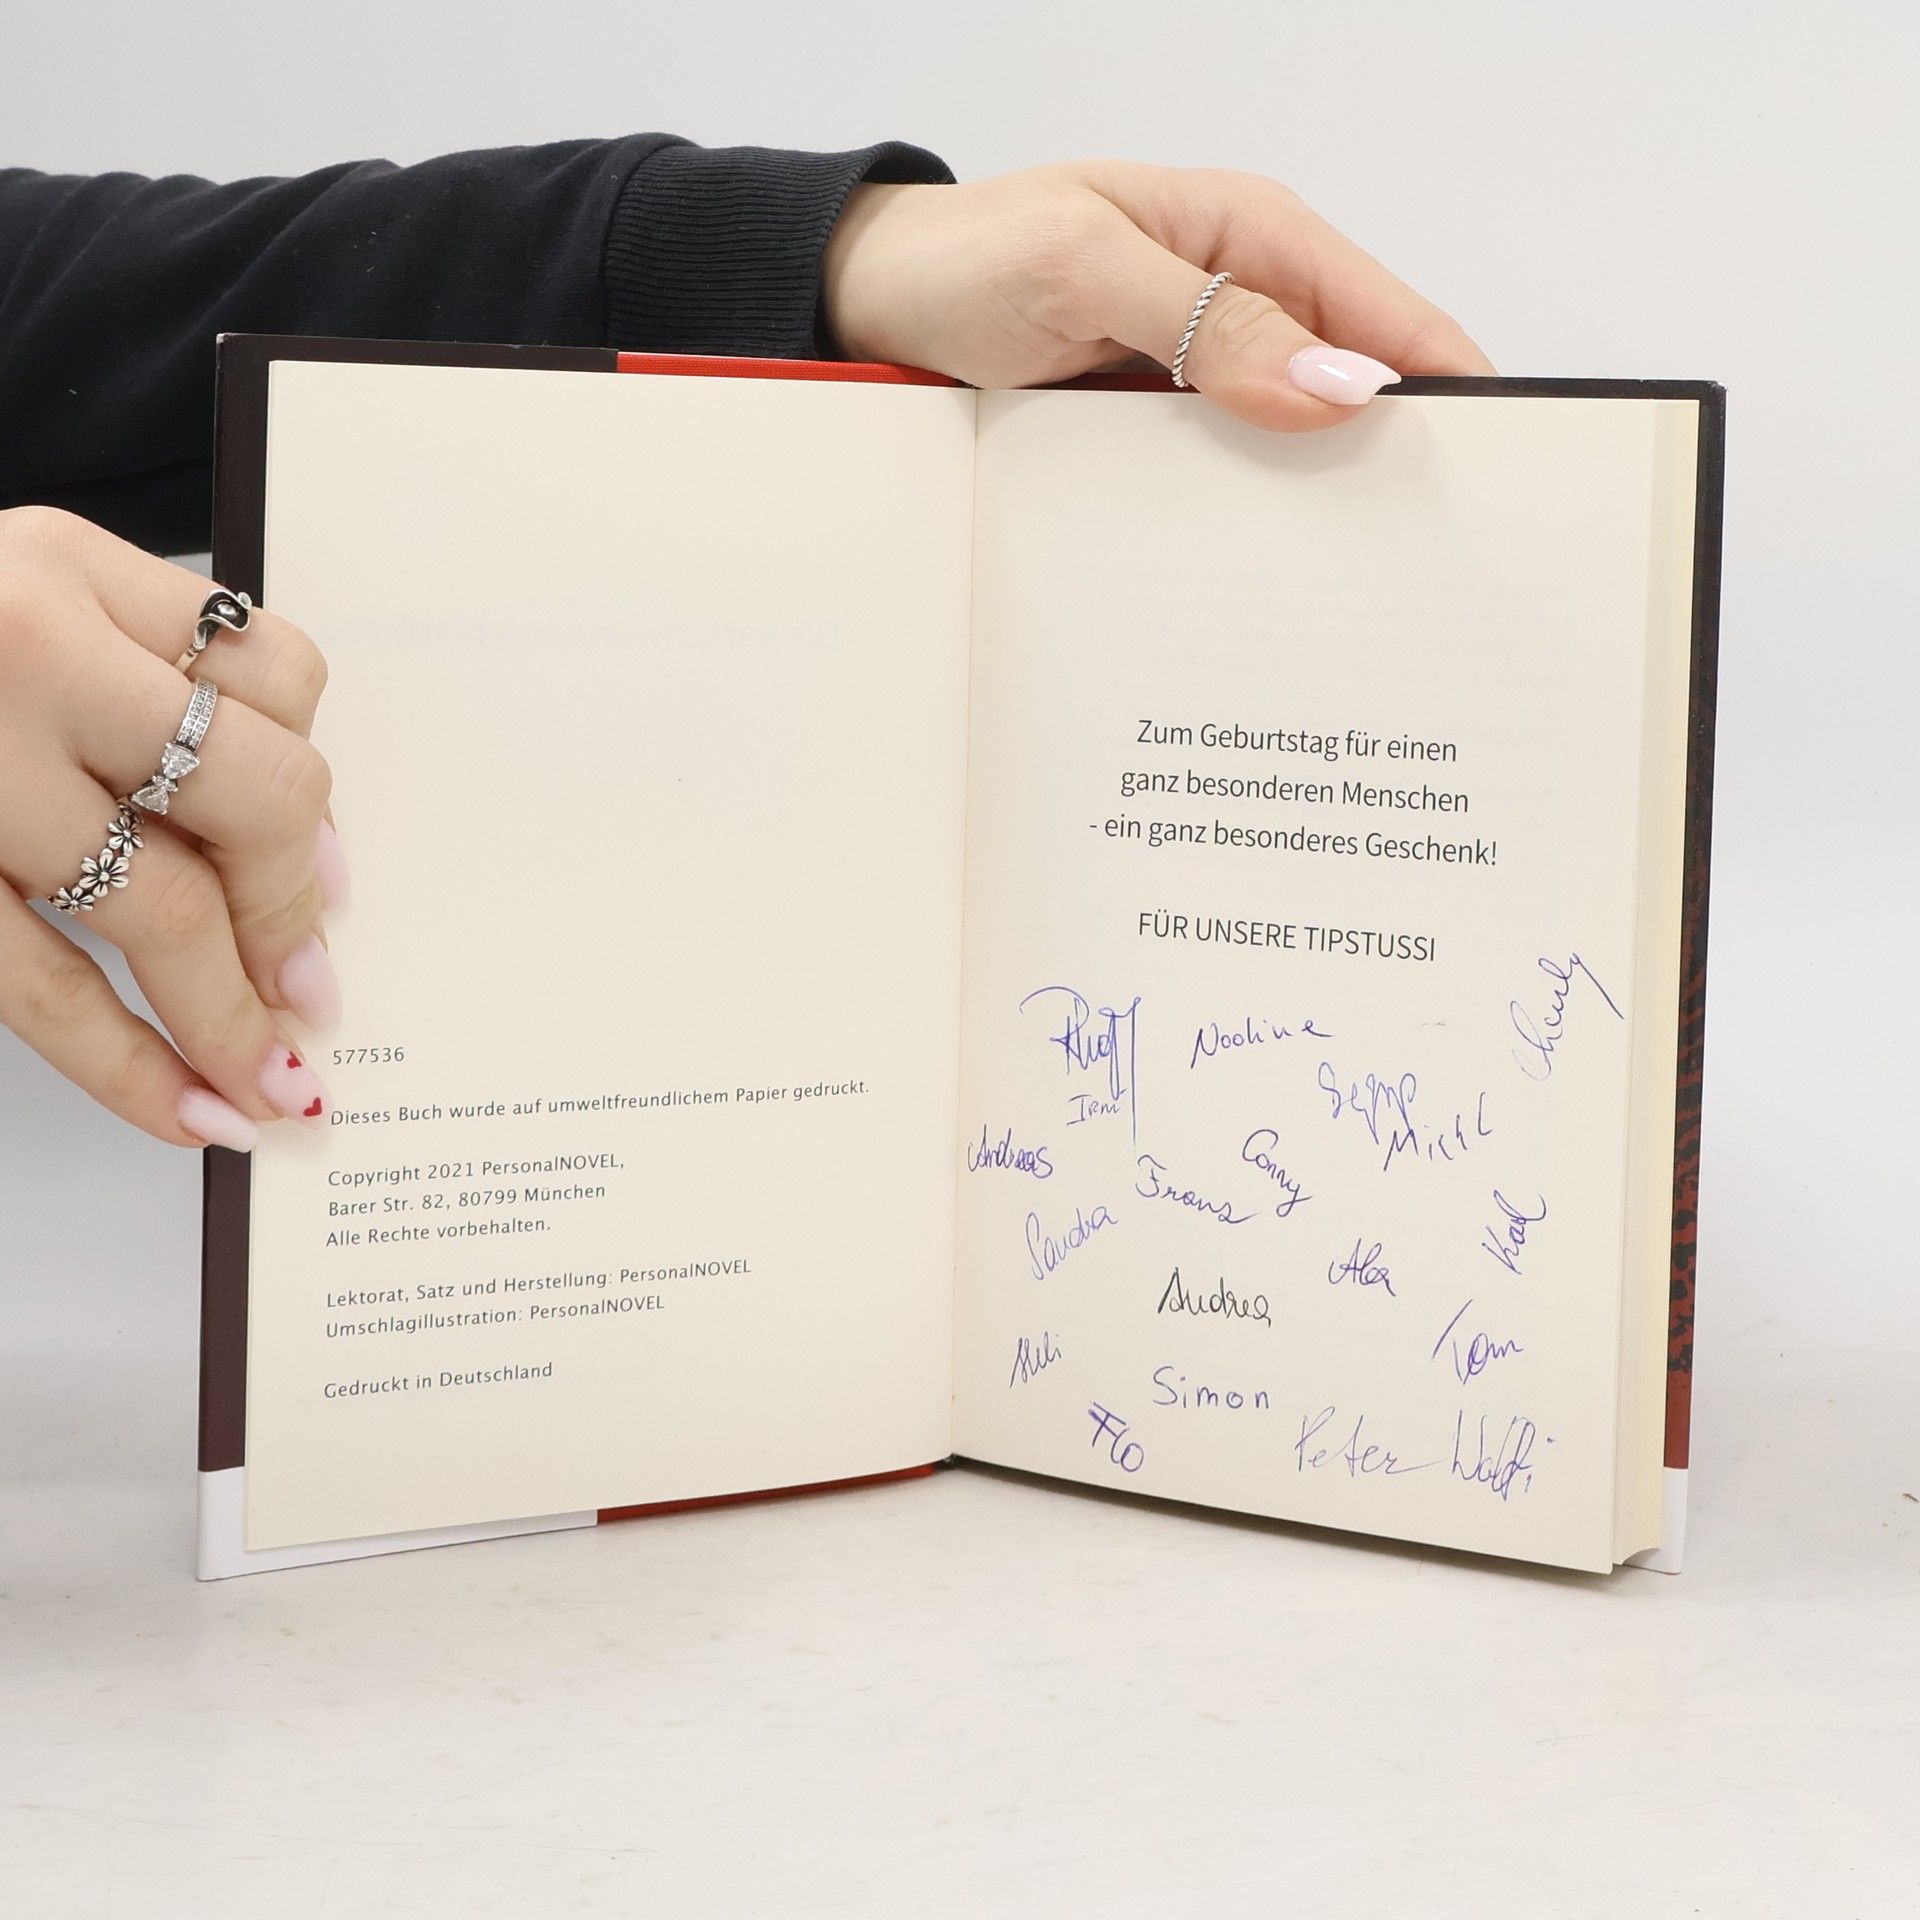 577536
Dieses Buch wurde auf umweltfreundlichem Papier gedruckt.
Copyright 2021 PersonalNOVEL,
Barer Str. 82, 80799 München
Alle Rechte vorbehalten.
Lektorat, Satz und Herstellung: PersonalNOVEL
Umschlagillustration: PersonalNOVEL
Gedruckt in Deutschland
Zum Geburtstag für einen
ganz besonderen Menschen
- ein ganz besonderes Geschenk!
FÜR UNSERE TIPSTUSSI
Charly
Nadine
Irmi
Sepp
Michl
Andreas
Franz
Conny
Sandra
Karl
Alex
Andrea
Tom
Simon
Flo
Peter
Wolfi